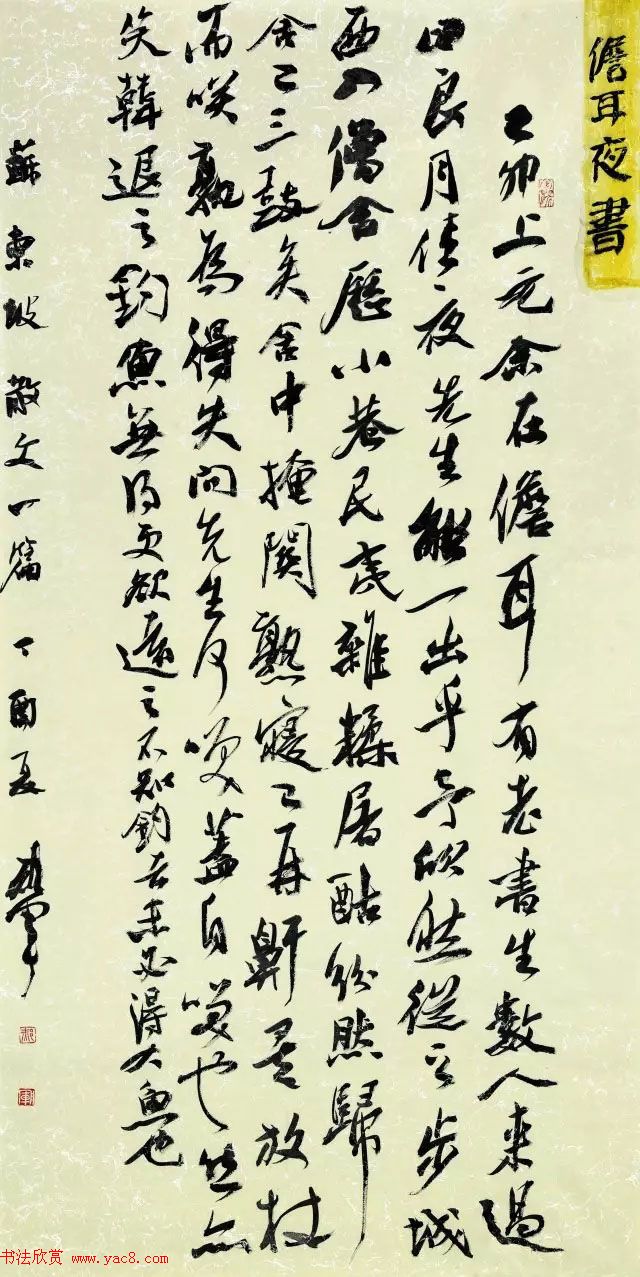 儋耳夜書
己卯上元余在儋耳有老書生數人来過
曰良月佳夜先生能一出乎予欣然從之步城
西入僧舍歷小巷民夷雜糅屠酤紛然歸
舍已三鼓矣舍中掩関熟寢已再鼾矣放杖
而咲孰為得失问先生何咲蓋自咲也然亦
笑韓退之釣魚無得更欲遠之不知釣者未必得大魚也
蘇東坡散文一篇 丁酉夏
书法欣赏 www.yac8.com